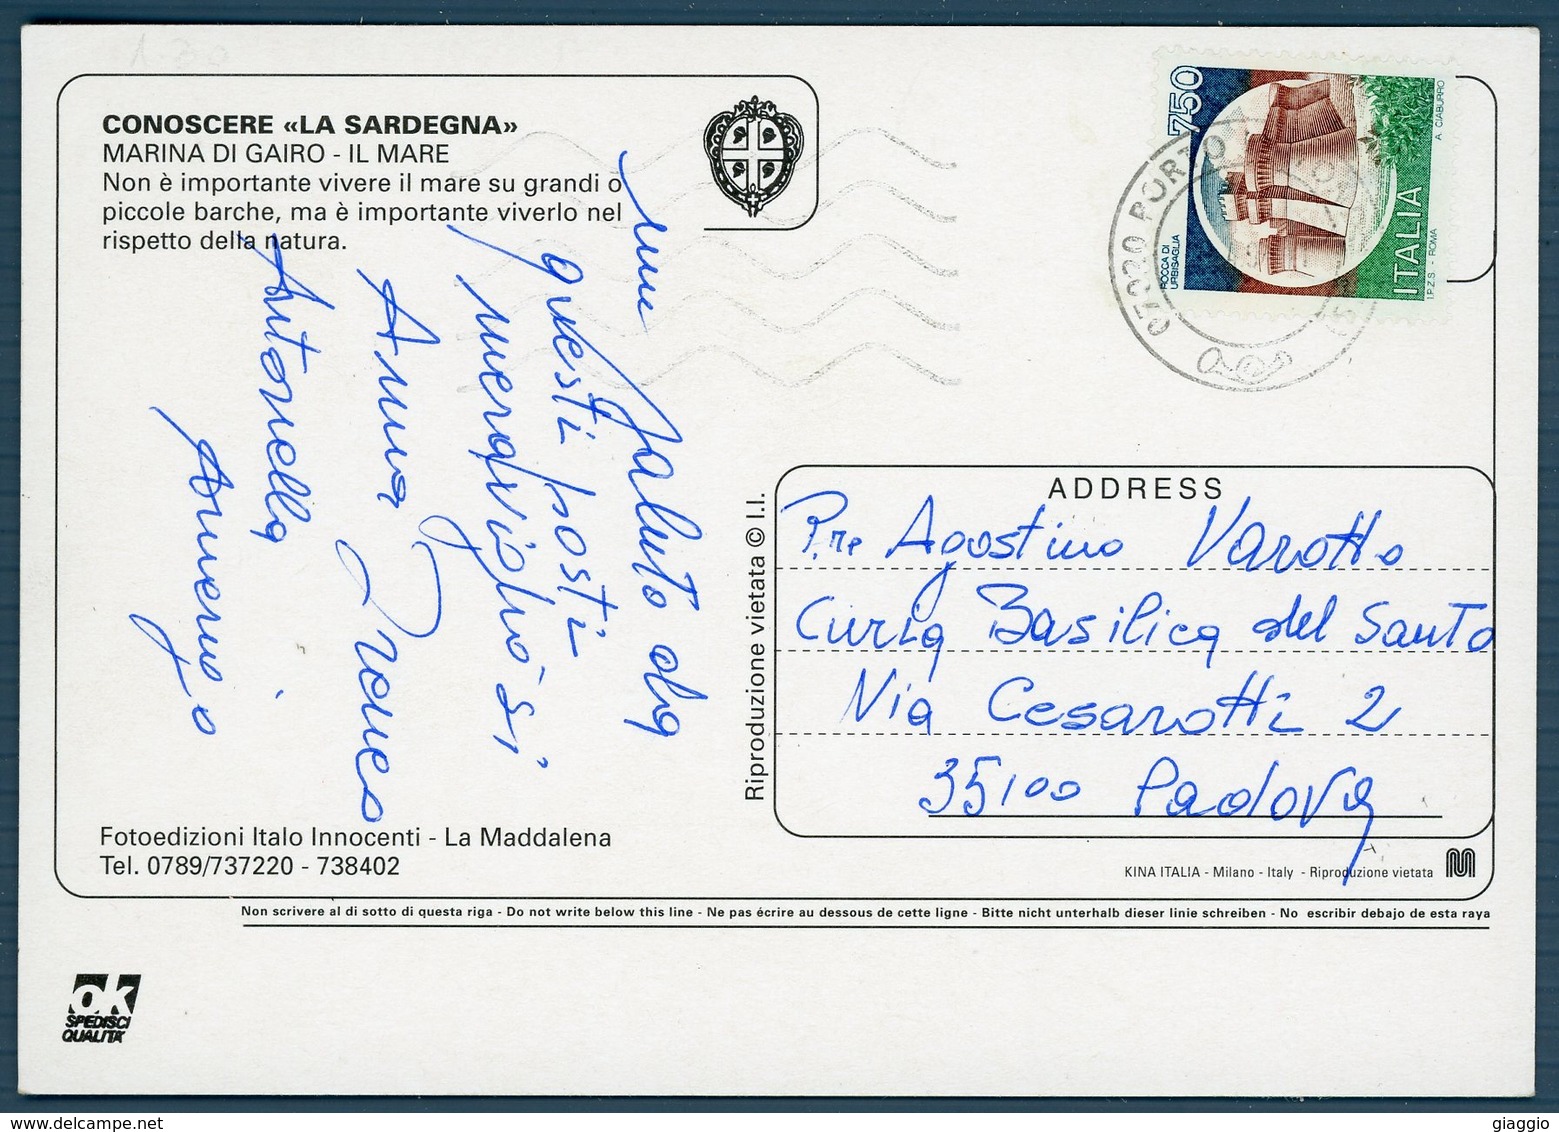 1.30
CONOSCERE «LA SARDEGNA»
MARINA DI GAIRO - IL MARE
Non è importante vivere il mare su grandi o
piccole barche, ma è importante viverlo nel
rispetto della natura.
saluto da
questi posti
meravigliosi
Anna
Antonella
Fotoedizioni Italo Innocenti - La Maddalena
Tel. 0789/737220 - 738402
Riproduzione vietata © I.I.
750
ROCCA DI
URBISAGLIA
ITALIA
I.P.Z.S. - ROMA
A. CIABURRO
07020 PORTO
ADDRESS
Agostino Varotto
Curia Basilica del Santo
Via Cesarotti 2
35100 Padova
KINA ITALIA - Milano - Italy - Riproduzione vietata
Non scrivere al di sotto di questa riga - Do not write below this line - Ne pas écrire au dessous de cette ligne - Bitte nicht unterhalb dieser linie schreiben - No escribir debajo de esta raya
ok
SPEDISCI
QUALITA'
delcampe.net
giaggio